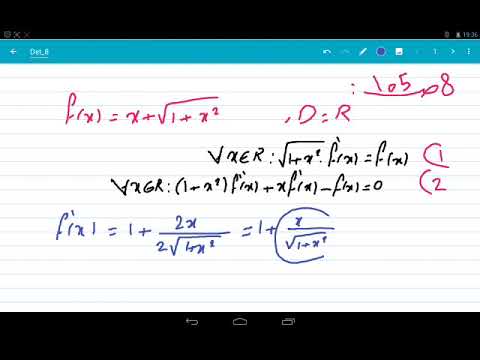 19:36
Det_8
1
f(x) = x+√(1+x²) , D=R
∀x∈R : √(1+x²) f'(x) = f(x) (1
∀x∈R : (1+x²) f''(x) + x f'(x) - f(x) = 0 (2
f'(x) = 1 + 2x/(2√(1+x²)) = 1 + x/√(1+x²)